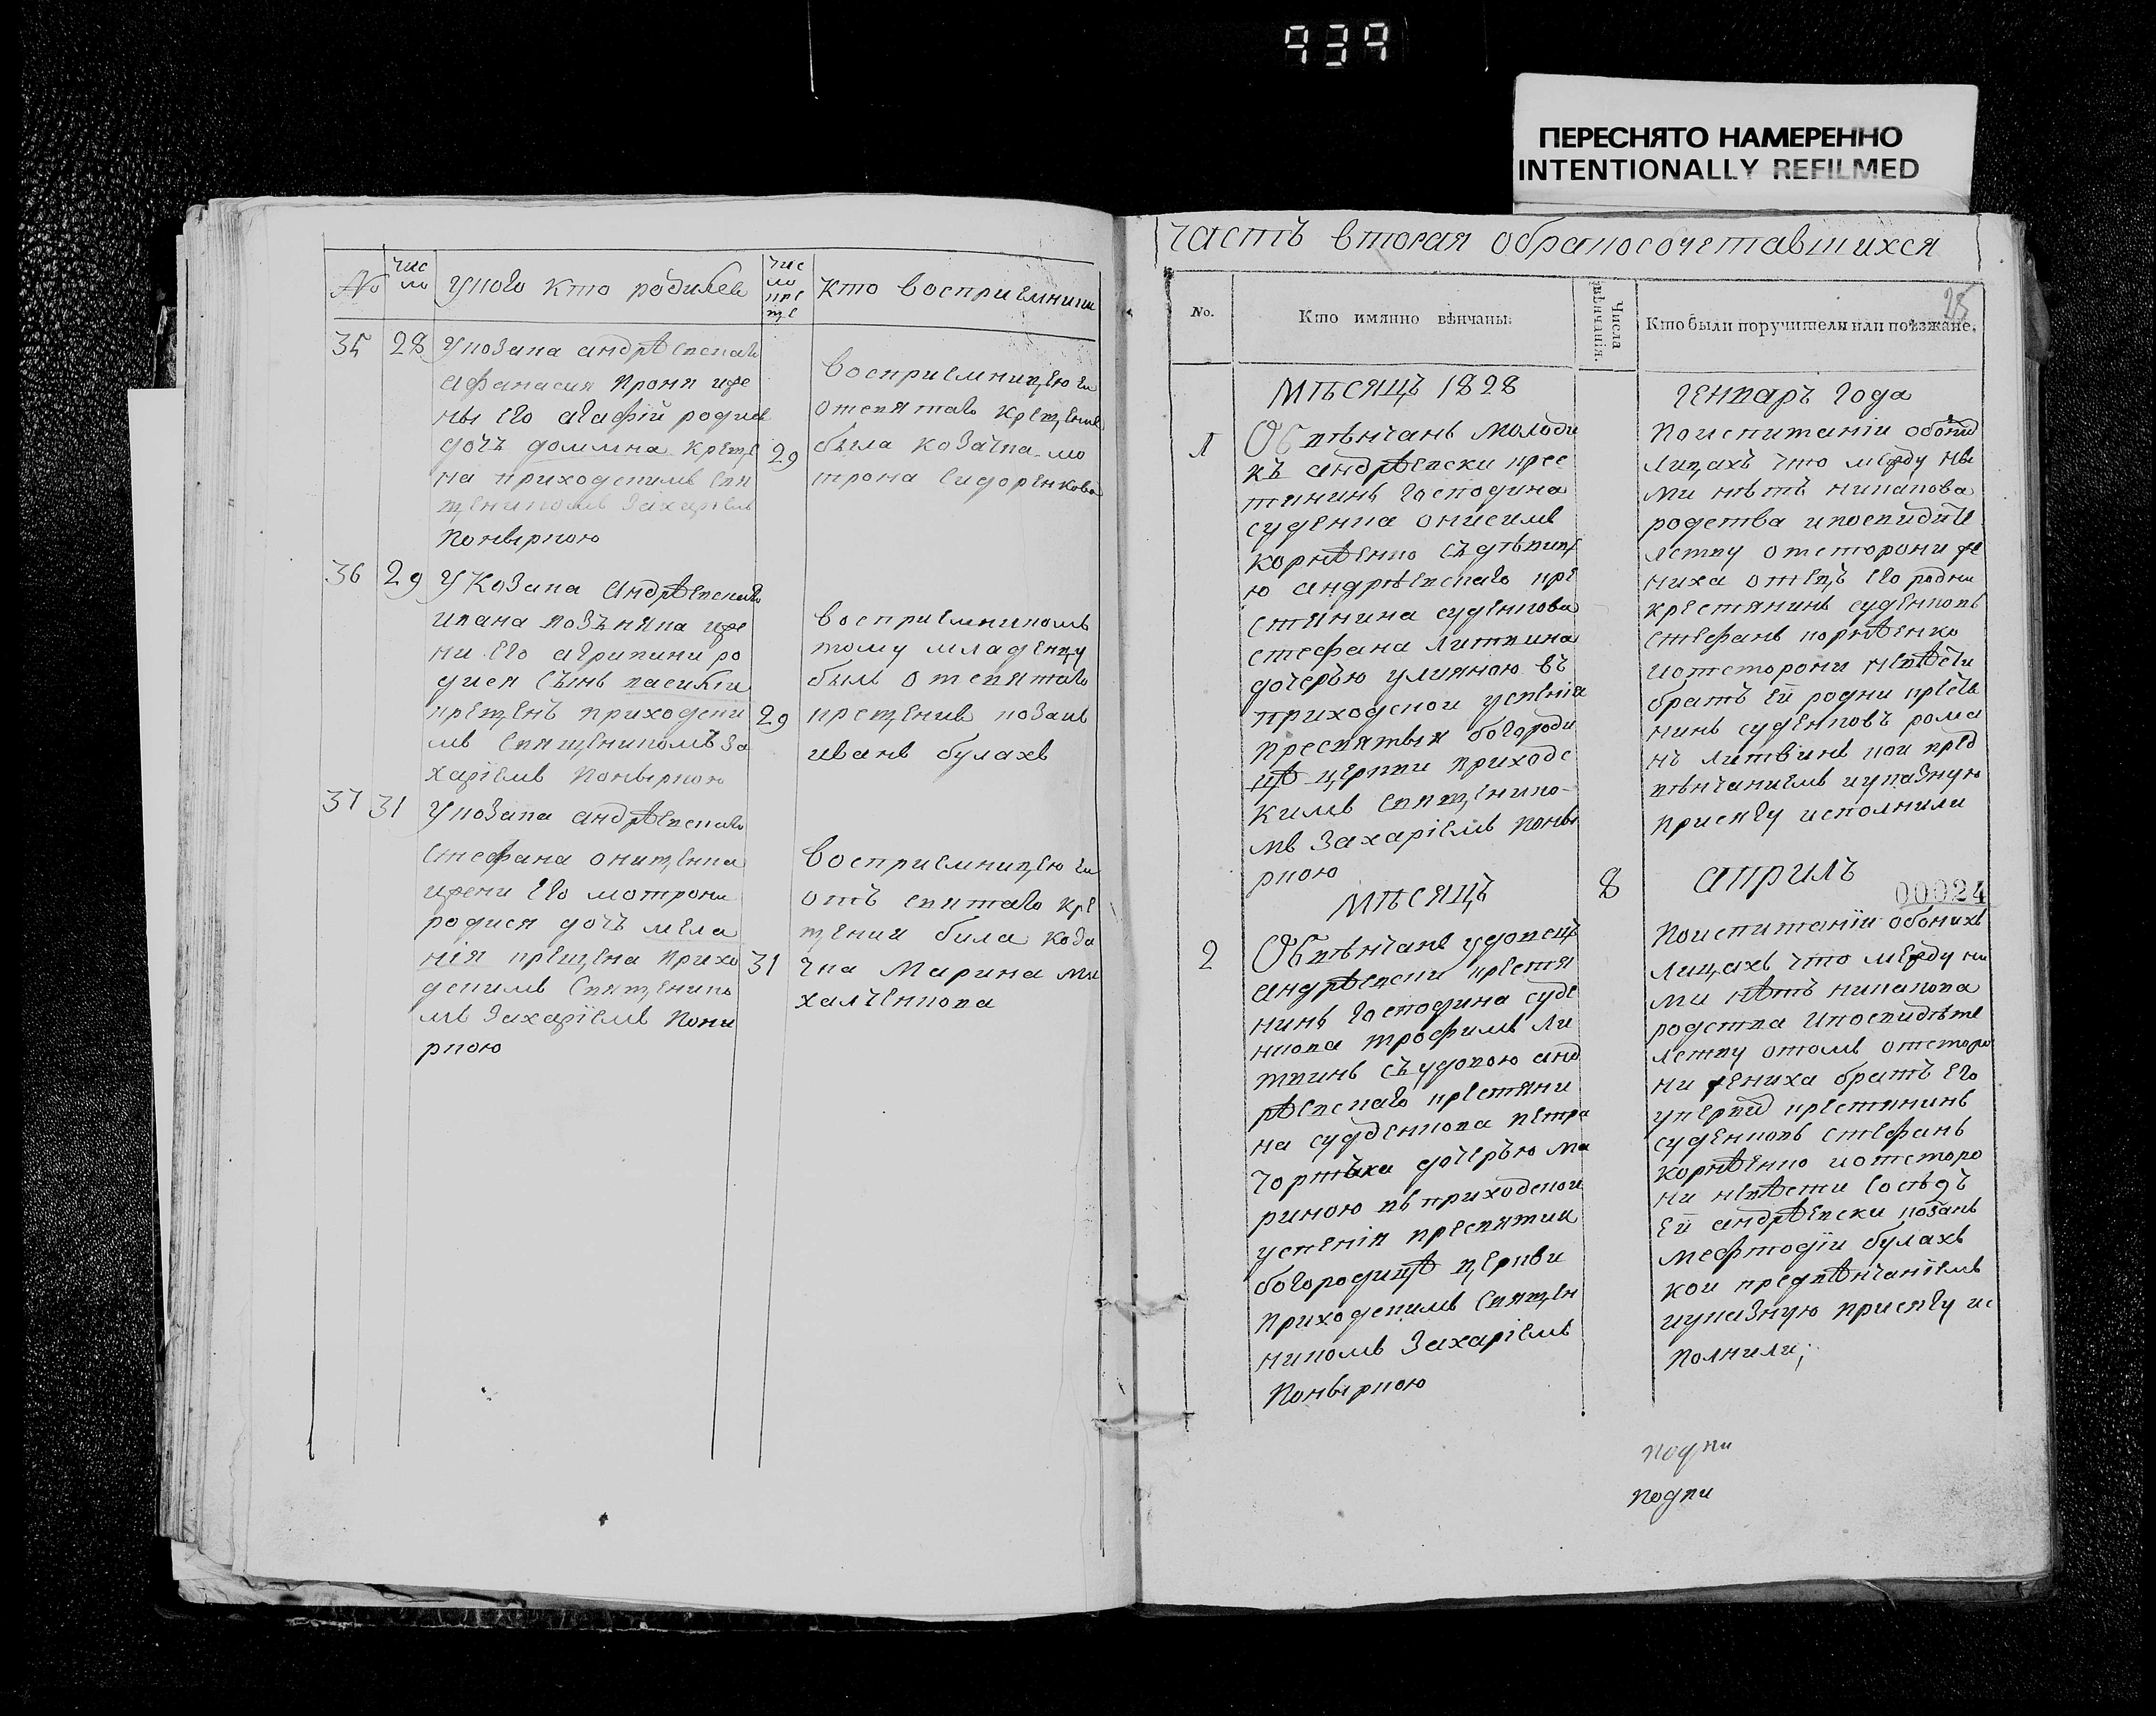 939
ПЕРЕСНЯТО НАМЕРЕННО
INTENTIONALLY REFILMED
№
чис
ло
Укого кто родился
чис
ло
кре
ще
кто восприемники
35 28 Уկозака андрѣевскаго
афанасия
ны его агафiй родис
дочъ домина креще
на приходскимъ свя
щеникомъ Захарiем
Конвѣркою
восприемницею еи
отсвятаго крещения
29 была козачка мо
трона сидоренкова
36 29 У Козака Андрѣевскаго
ивана ижե
ни его агрипини ро
дися сынъ василiи
крещенъ приходски
мъ священикомъ за
харiемъ
восприемникомъ
тому младенцу
былъ отсвятаго
29 крещения козакъ
иванъ булахъ
37 31 Укозака андрѣевскаго
стефана онищенка
ижени его мотрони
родися дочъ мела
нiя крещена прихо
дскимъ священико
мъ Захарiемъ
ркою
восприемницею еи
отъ святаго кре
щения била коза
31 чка Марина ми
халченкова
часть вторая обракосочетавшихся
25
No.
Кто имянно вѣнчаны.
Числа
вѣнчанія.
Кто были поручители или поѣзжане.
мѣсяцъ 1828
генваръ года
1 Обвѣнчанъ молоди
къ андрѣевски крес
тянинъ господина
суденка онисимъ
корнѣенко съдѣвиц
ю андрѣевскаго кре
стянина суденкова
стефана литвина
дочерью улияною въ
приходскои успения
пресвятыя богороди
цѣ церкви приходс
кимъ священико-
мъ Захарiемъ
ркою
Поиспитанiи
лицахъ что между ны
ми нѣтъ никакова
родства ипосвидите
лству отсторони же
ниха отецъ его родни
крестянинъ суденковъ
стефанъ корнѣенко
иотсторони невѣсти
братъ ей родни кресть
нинъ суденковъ рома
нъ литвинъ кои пред
вѣнчаниемъ иуказную
присягу исполнили
мѣсяцъ
8
априлъ
00024
2 Обвѣнчанъ удовец
андрѣевски крестя
нинъ господина суде
нкова трофимъ ли
твинъ съудовою анд
рѣевскаго крестяни
на судденкова петра
дочерью ма
риною въ приходскои
успения пресвятии
богородицѣ церкви
приходскимъ священ
никомъ Захарiемъ
Конвѣркою
Поиспитанiи обоихъ
лицахъ что между ни
ми нѣтъ никакова
родства ипосвидѣте
лству отомъ отсторо
ни жениха братъ его
крестянинъ
суденковъ стефанъ
корнѣенко иотсторо
ни невѣсти сосѣдъ
ей андрѣевски козакъ
мефтодiи булахъ
кои предвѣнчанiемъ
иуказную присягу ис
полнили;